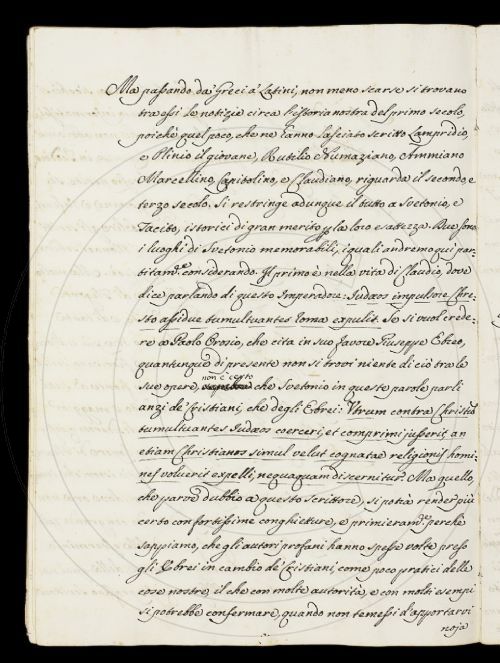 Ma passando da' Greci a' Latini, non meno scarse si trovano
tra essi le notizie circa l'istoria nostra del primo secolo,
poichè quel poco, che ne hanno lasciato scritto Lampridio,
e Plinio il giovane, Rutilio Numaziano, Ammiano
Marcellino, Capitolino, e Claudiano, riguarda il secondo, e
terzo secolo. Si restringe adunque il tutto a Svetonio, e
Tacito, istorici di gran merito p la loro esattezza. Due sono
i luoghi di Svetonio memorabili, i quali andremo qui par-
titam.e considerando. Il primo è nella vita di Claudio, dove
dice parlando di questo Imperadore: Judæos impulsore Chre-
sto assidue tumultuantes Roma expulit. Se si vuol crede-
re a Paolo Orosio, che cita in suo favore Giuseppe Ebreo,
quantunque di presente non si trovi niente di ciò tra le
sue opere, non è certo che Svetonio in queste parole parli
anzi de' Cristiani, che degli Ebrei: Utrum contra Christum
tumultuantes Judæos coerceri, et comprimi jusserit, an
etiam Christianos simul velut cognatæ religionis homi-
nes voluerit expelli, nequaquam discernitur. Ma quello,
che parve dubbio a questo Scrittore, si potrà render più
certo con fortissime conghietture, e primieram.e perchè
sappiamo, che gli autori profani hanno spesse volte preso
gli Ebrei in cambio de' Cristiani, come poco pratici delle
cose nostre, il che con molte autorità, e con molti esempi
si potrebbe confermare, quando non temessi d'apportarvi
noja